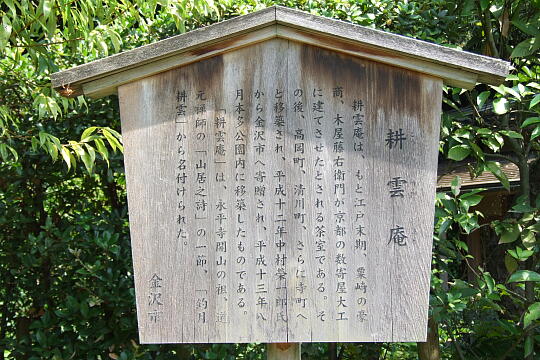 耕雲庵
耕雲庵は、もと江戸末期、粟崎の豪
商、木屋藤右衛門が京都の数寄屋大工
に建てさせたとされる茶室である。そ
の後、高岡町、清川町、さらに寺町へ
と移築され、平成十二年中村栄一郎氏
から金沢市へ寄贈され、平成十三年八
月本多公園内に移築したものである。
「耕雲庵」は、永平寺開山の祖、道
元禅師の「山居之詩」の一節、「釣月
耕雲」から名付けられた。
金沢市